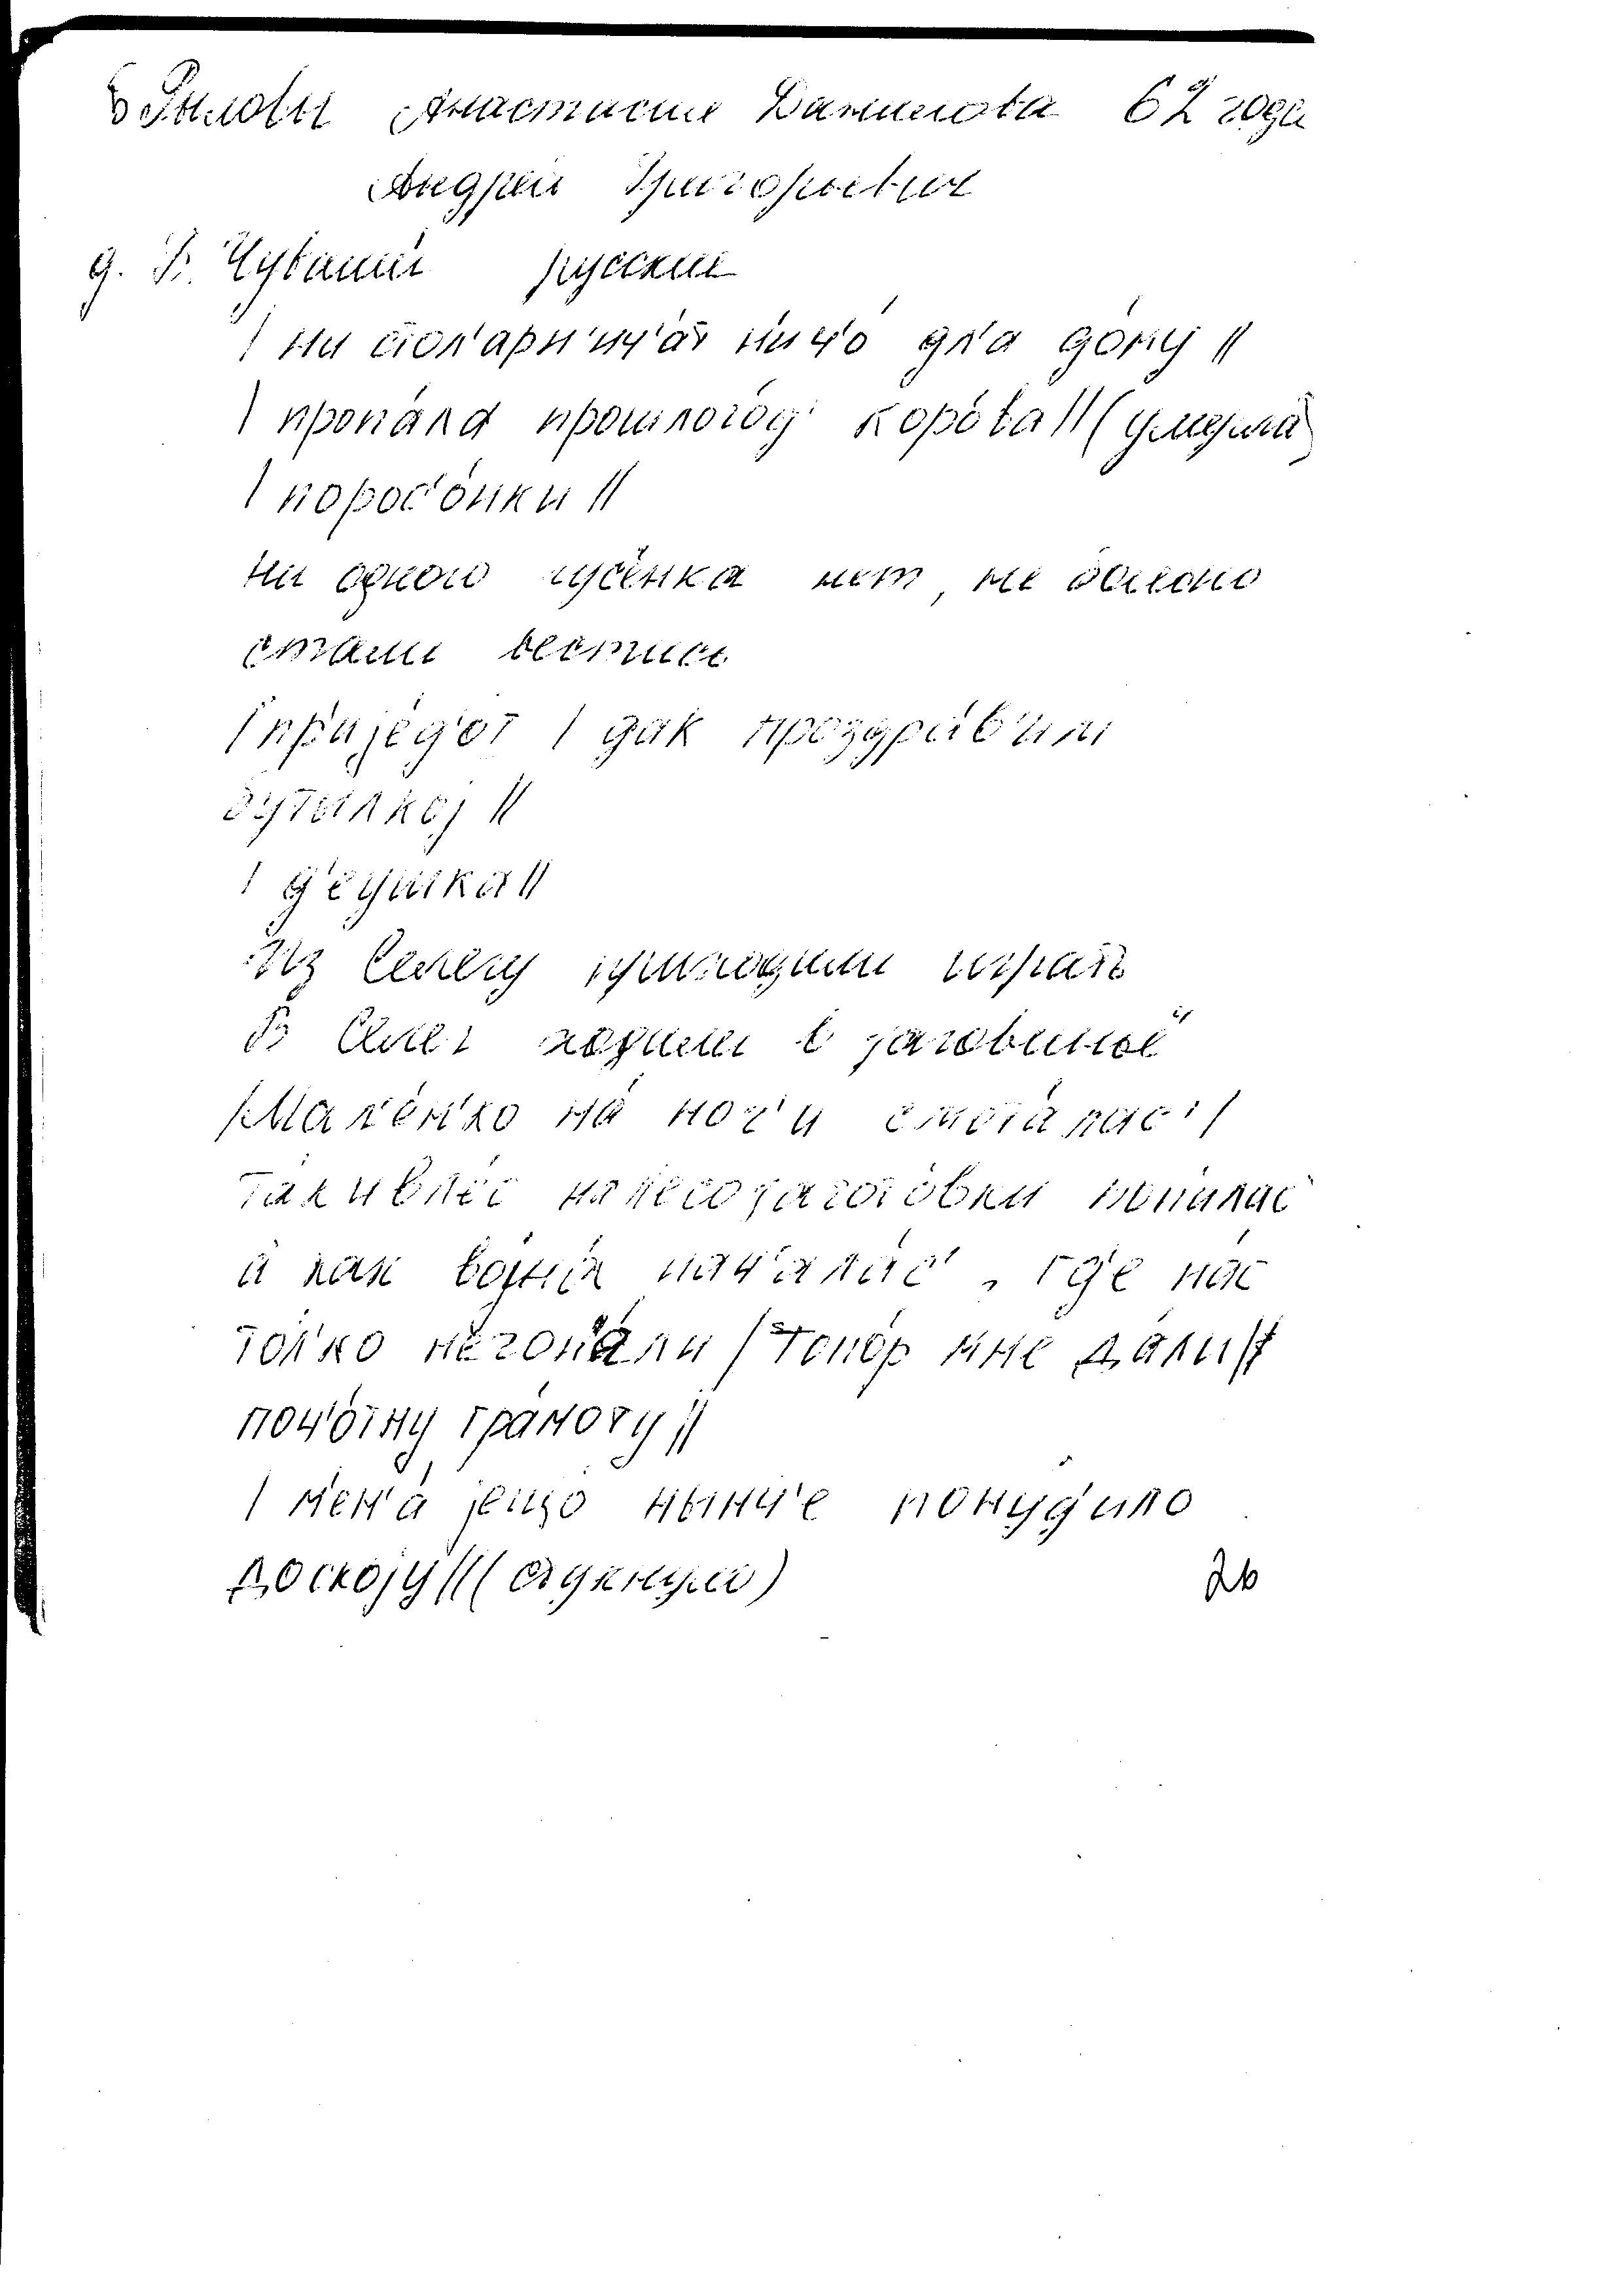 Рыловы Анастасия Данилова 62 года
Андрей Григорьевич
д. В. Чуваши русские
| ни стол'арн'ич'áт нич'ó дл'а дóму ||
| пропáла прошлогóд' корóва || (умерла)
| порос'óнки ||
ни одного гусёнка нет, не
стали вестись
| пр'ијéд'от | дак проздрáв'им
бутылкој ||
| д'éушка ||
Из Селегу приходили играть
В Селег ходили в заговинье
| Мал'éн'ко нá ноч'и смотáлас' |
так и в лéс на лесозаготóвки попáлас'
а как војнá нач'алáс', гд'е нас
тóл'ко не гон'áли | топóр мне дáли ||
поч'óтну грáмоту ||
| м'ен'á јещó нынч'е понýд'ило
доскоју || (стукнуло)
26